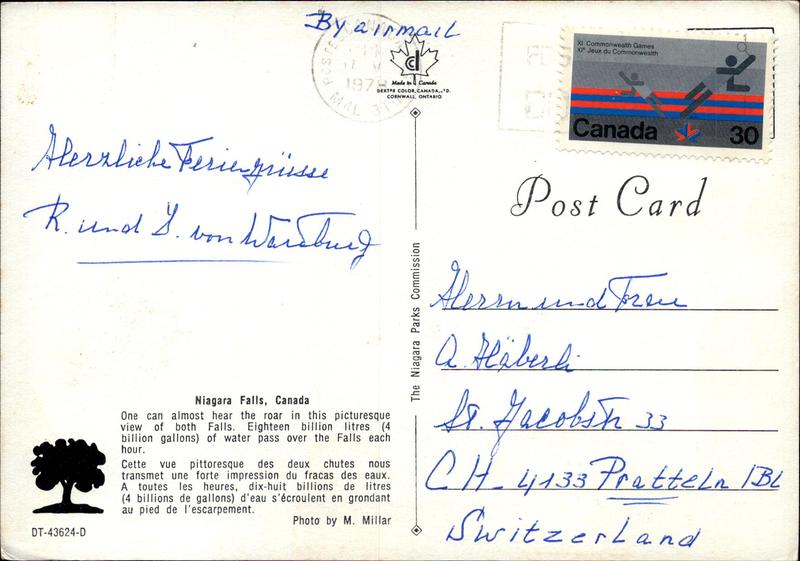 By airmail
1978
Made in Canada
DEXTER COLOR, CANADA, LTD.
CORNWALL, ONTARIO
XI Commonwealth Games
XIes Jeux du Commonwealth
Canada 30
Post Card
Herzliche Feriengrüsse
R. und von
Herrn und Frau
A. Häberli
St. Jacobstr 33
CH-4133 Pratteln /BL
Switzerland
The Niagara Parks Commission
Niagara Falls, Canada
One can almost hear the roar in this picturesque
view of both Falls. Eighteen billion litres (4
billion gallons) of water pass over the Falls each
hour.
Cette vue pittoresque des deux chutes nous
transmet une forte impression du fracas des eaux.
A toutes les heures, dix-huit billions de litres
(4 billions de gallons) d'eau s'écroulent en grondant
au pied de l'escarpement.
Photo by M. Millar
DT-43624-D